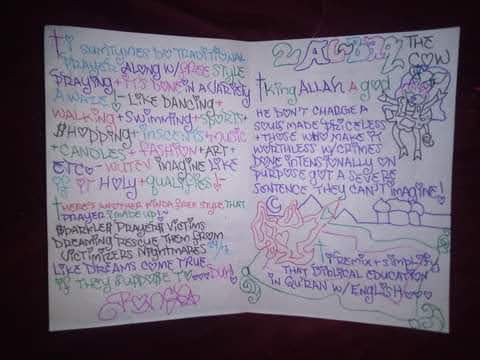 I SUMTYMES DO TRADITIONAL
PRAYER ALONG W/ FREE STYLE
PRAYING + IT'S DONE IN A VARIETY
A WAYZ LIKE DANCING +
WALKING + SWIMMING + SPORTS +
SHOPPING + INSCENTS + MUSIC
+ CANDLES + FASHION + ART +
ETC WUTEV IMAGINE LIKE
IF IT HOLY + QUALIFIES
THERE'S ANOTHER KINDA FREE STYLE THAT
PRAYER I MADE UP!
SPARKLE PRAYER VICTIMS
DREAMING RESCUE THEM FROM
VICTIMIZERS NIGHTMARES 24/7
LIKE DREAMS COME TRUE
IF THEY SUPPOSE T DUH!
THE
COW
KING ALLAH A GOD
HE DON'T CHARGE A
SOULS MADE PRICELESS
+ THOSE WHO MAKE IT
WORTHLESS W/ CRIMES
DONE INTENSIONALLY ON
PURPOSE GOT A SEVERE
SENTENCE THEY CAN'T IMAGINE!
I REMIX + SIMPLIFY
THAT BIBLICAL EDUCATION
IN QU'RAN W/ ENGLISH